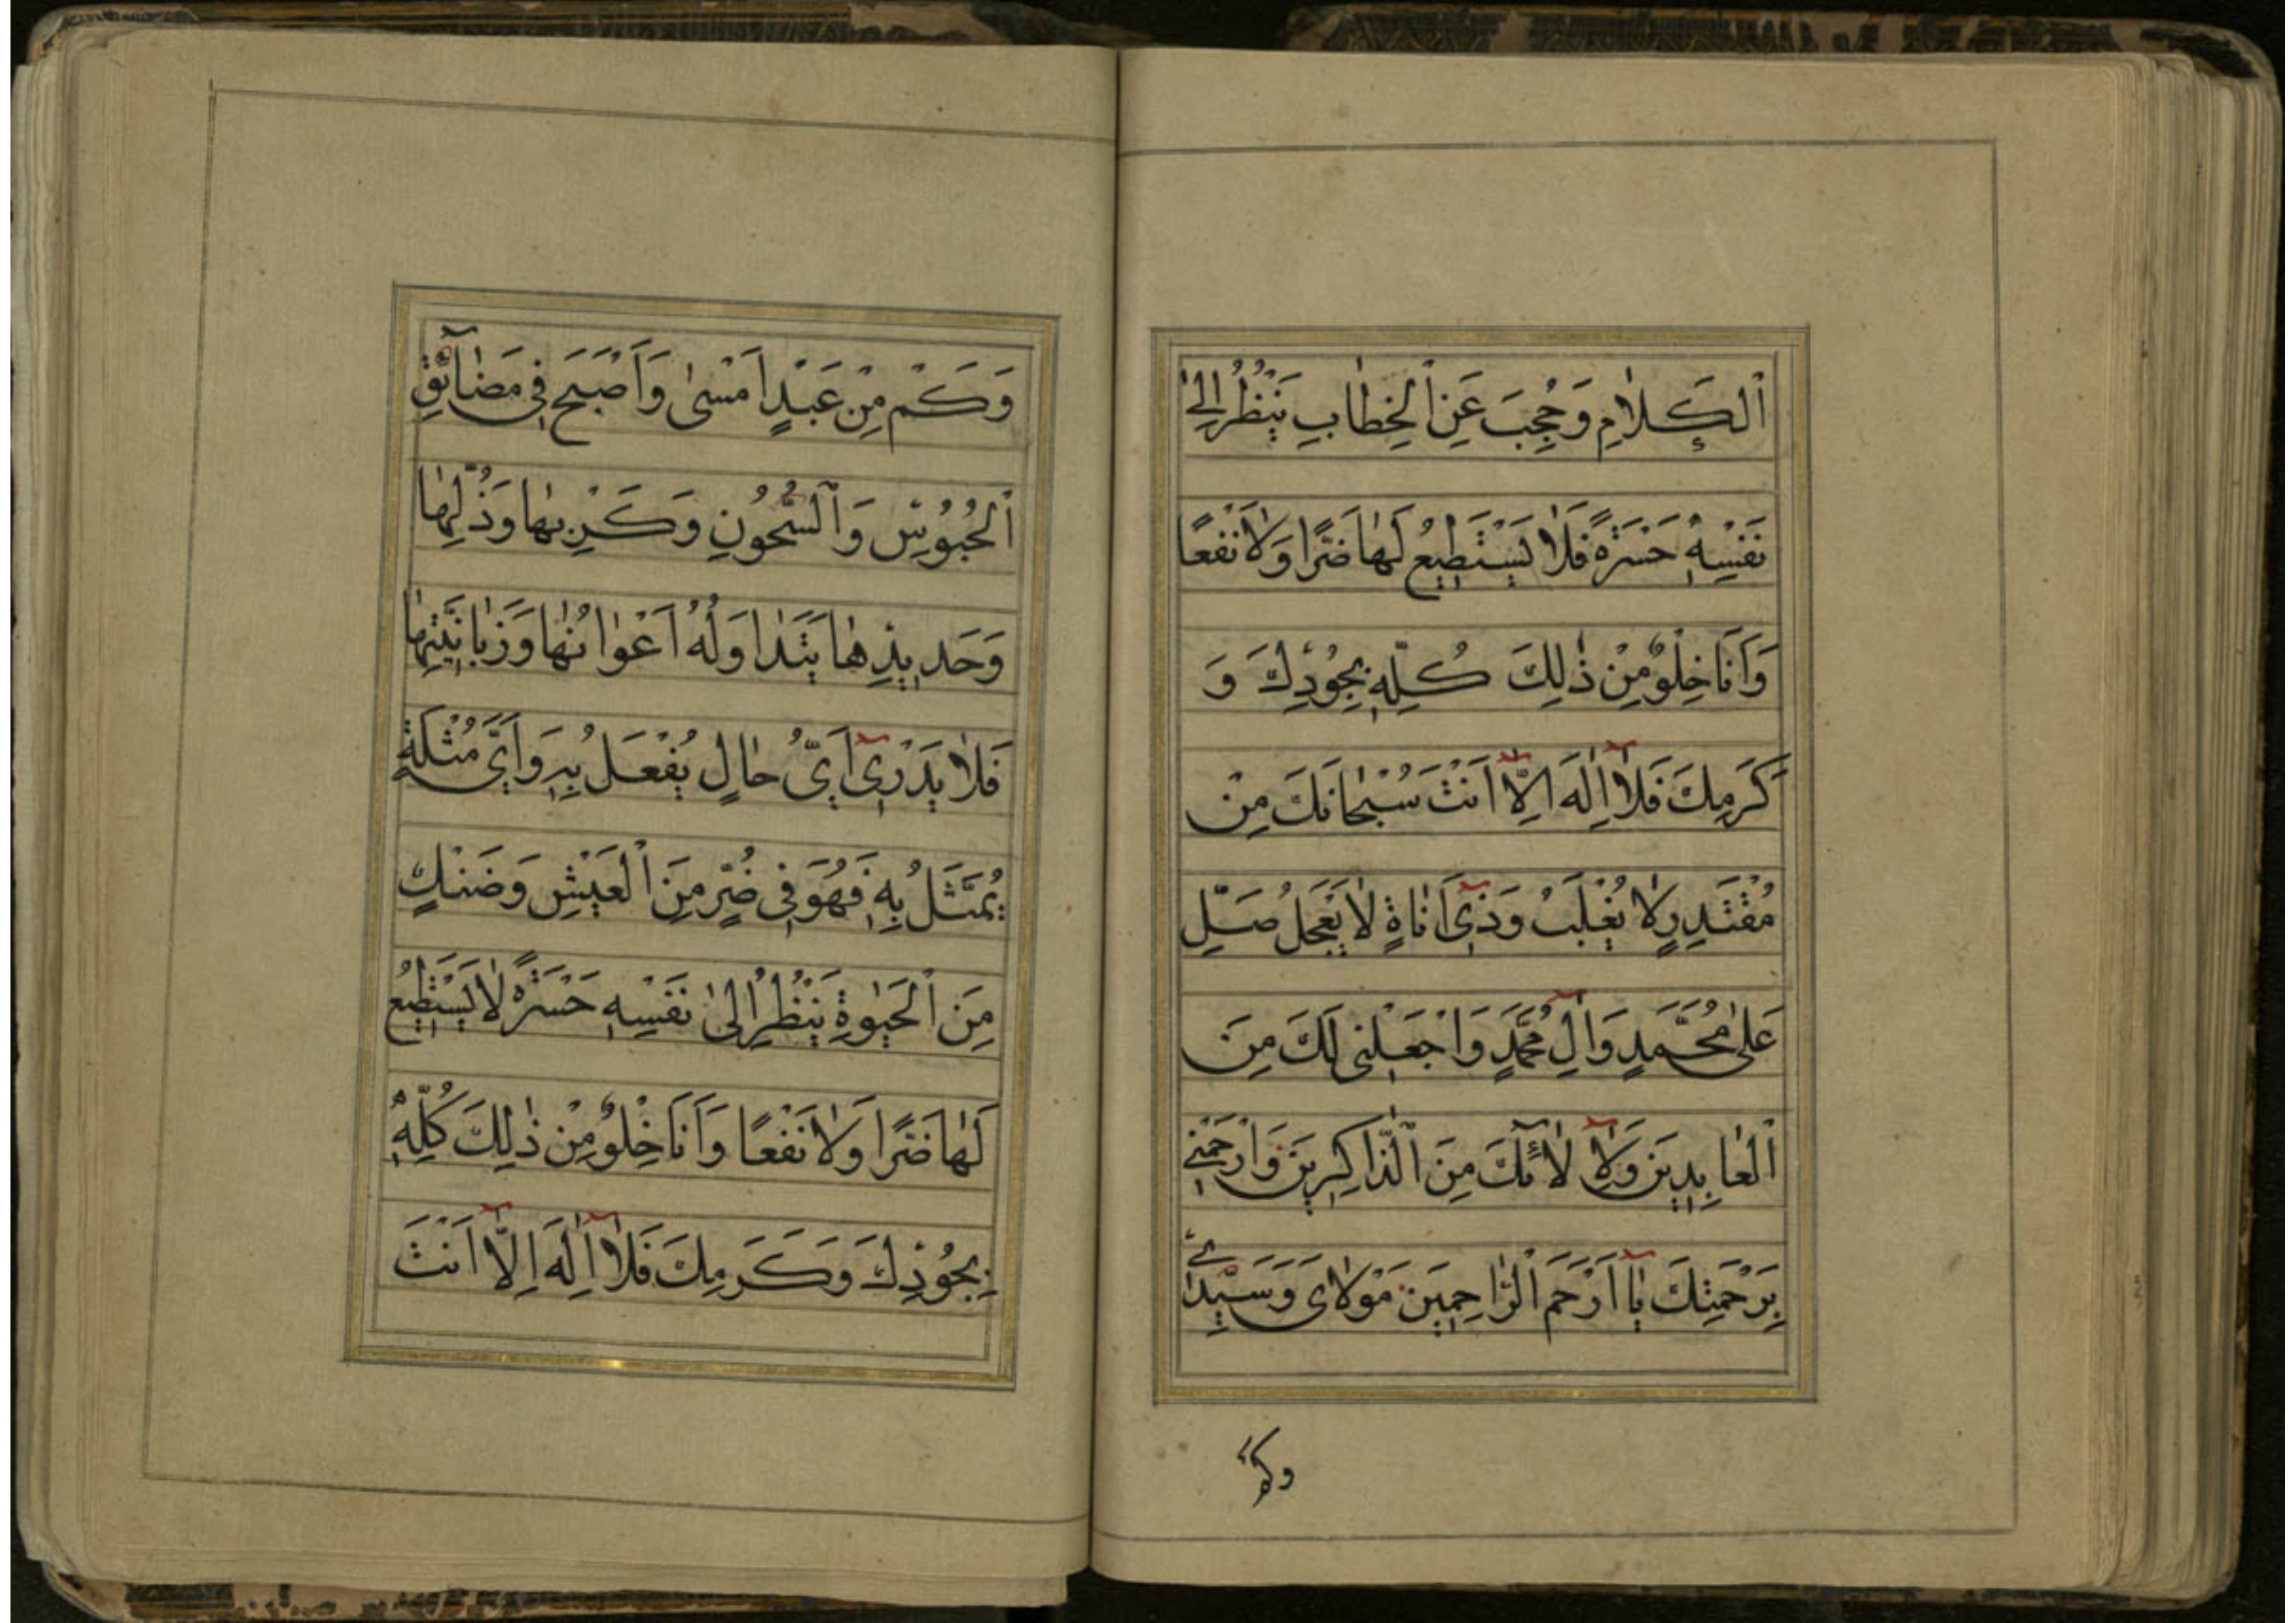 اَلْكَلٰامِ وَحُجِبَ عَنِ الْخِطٰابِ يَنْظُرُ اِلىٰ
نَفْسِهٖ حَسْرَةً فَلٰا يَسْتَطٖيعُ لَهٰا ضَرًّا وَلٰا نَفْعًا
وَاَنَا خِلْوٌ مِنْ ذٰلِكَ كُلِّهٖ بِجُودِكَ وَ
كَرَمِكَ فَلٰٓا اِلٰهَ اِلّٰٓا اَنْتَ سُبْحٰانَكَ مِنْ
مُقْتَدِرٍ لٰا يُغْلَبُ وَذٖٓى اَنٰاةٍ لٰا يَعْجَلُ صَلِّ
عَلىٰ مُحَمَّدٍ وَاٰلِ مُحَمَّدٍ وَاجْعَلْنٖى لَكَ مِنَ
الْعٰابِدٖينَ وَلِاٰلٰٓائِكَ مِنَ الذّٰاكِرٖينَ وَارْحَمْنٖى
بِرَحْمَتِكَ يٰٓا اَرْحَمَ الرّٰاحِمٖينَ مَوْلٰاىَ وَسَيِّدٖى
وكم
وَكَمْ مِنْ عَبْدٍ اَمْسىٰ وَاَصْبَحَ فٖى مَضٰٓائِقِ
الْحُبُوسِ وَالسُّجُونِ وَكَرْبِهٰا وَذُلِّهٰا
وَحَدٖيدِهٰا يَتَدٰاوَلُهُ اَعْوٰانُهٰا وَزَبٰانِيَتُهٰا
فَلٰا يَدْرٖٓى اَىُّ حٰالٍ يُفْعَلُ بِهٖ وَاَىُّ مُثْلَةٍ
يُمَثَّلُ بِهٖ فَهُوَ فٖى ضُرٍّ مِنَ الْعَيْشِ وَضَنْكٍ
مِنَ الْحَيٰوةِ يَنْظُرُ اِلىٰ نَفْسِهٖ حَسْرَةً لٰا يَسْتَطٖيعُ
لَهٰا ضَرًّا وَلٰا نَفْعًا وَاَنَا خِلْوٌ مِنْ ذٰلِكَ كُلِّهٖ
بِجُودِكَ وَكَرَمِكَ فَلٰٓا اِلٰهَ اِلّٰٓا اَنْتَ